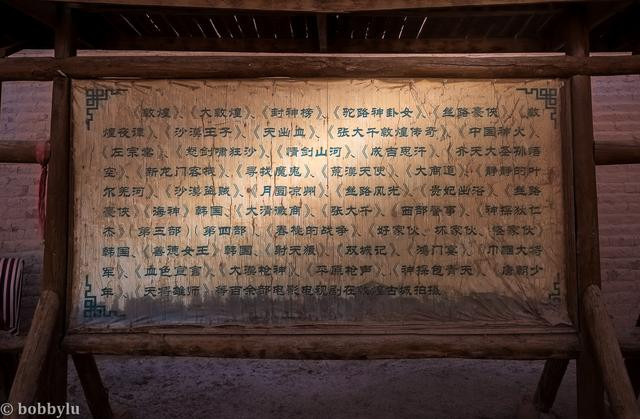 《敦煌》、《大敦煌》、《封神榜》、《驼路神卦女》、《丝路豪侠》、《敦
煌夜谭》、《沙漠王子》、《天出血》、《张大千敦煌传奇》、《中国神火》、
《左宗棠》、《怒剑啸狂沙》、《情剑山河》、《成吉思汗》、《齐天大圣孙悟
空》、《新龙门客栈》、《寻找魔鬼》、《荒漠天使》、《大商道》、《静静的叶
尔羌河》、《沙漠盗贼》、《月圆凉州》、《丝路风光》、《贵妃出浴》、《丝路
豪侠》《海神》韩国、《大清徽商》、《张大千》、《西部警事》、《神探狄仁
杰》《第三部》《第四部》、《春桃的战争》、《好家伙、坏家伙、怪家伙》
韩国、《善德女王》韩国、《射天狼》、《双城记》、《鸿门宴》、《巾帼大将
军》、《血色宣言》、《大漠枪神》、《平原枪声》、《神探包青天》、《唐朝少
年》、《天将雄师》等百余部电影电视剧在敦煌古城拍摄。
© bobbylu